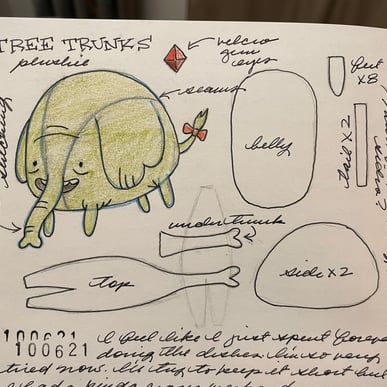 TREE TRUNKS
plushie
velcro
gem
eyes
seams
stitching
feet
x8
tail x 2
belly
under trunk
top
side x 2
sides?
100621
100621
I feel like I just spent forever
doing the dishes. I'm so very
tired now. I'm trying to keep it short but